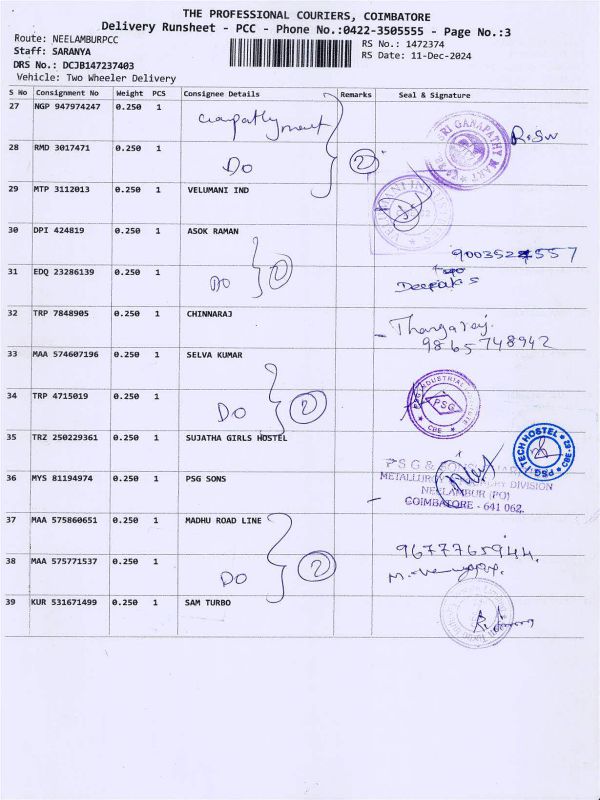 THE PROFESSIONAL COURIERS, COIMBATORE
Delivery Runsheet - PCC - Phone No.:0422-3505555 - Page No.:3
Route: NEELAMBURPCC
RS No.: 1472374
Staff: SARANYA
RS Date: 11-Dec-2024
DRS No.: DCJB147237403
Vehicle: Two Wheeler Delivery
S No Consignment No Weight PCS Consignee Details Remarks Seal & Signature
27 NGP 947974247 0.250 1
28 RMD 3017471 0.250 1 Do 2
RI GANAPATHY MART
29 MTP 3112013 0.250 1 VELUMANI IND
30 DPI 424819 0.250 1 ASOK RAMAN
31 EDQ 23286139 0.250 1 Do
Deepak S
32 TRP 7848905 0.250 1 CHINNARAJ
Thangaraj.
9865748942
33 MAA 574607196 0.250 1 SELVA KUMAR
34 TRP 4715019 0.250 1 Do 2
PSG INDUSTRIAL INSTITUTE
PSG
CBE
35 TRZ 250229361 0.250 1 SUJATHA GIRLS HOSTEL
PSG ITECH HOSTEL CBE-62
36 MYS 81194974 0.250 1 PSG SONS
PSG & SONS
METALLURGY DIVISION
NEELAMBUR (PO)
COIMBATORE - 641 062.
37 MAA 575860651 0.250 1 MADHU ROAD LINE
9677765944
38 MAA 575771537 0.250 1 Do 2
39 KUR 531671499 0.250 1 SAM TURBO